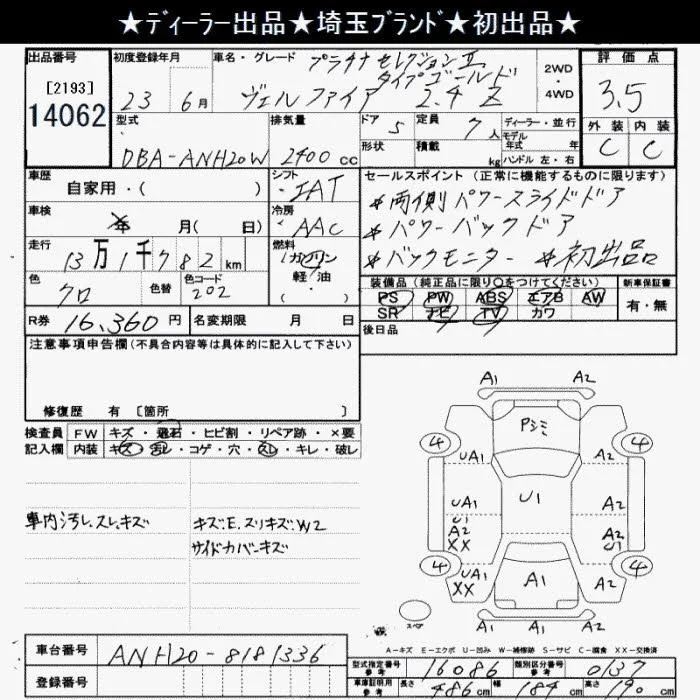 ★ディーラー出品★埼玉ブランド★初出品★
出品番号
[2193]
14062
初度登録年月
23 6月
車名・グレード
プラチナセレクションⅡ
タイプゴールド
ヴェルファイア 2.4 Z
2WD
・
4WD
評価点
3.5
外装 内装
C C
型式
DBA-ANH20W
排気量
2400 cc
ドア 5
形状
定員 7人
積載 kg
ディーラー・並行
モデル
年式 年
ハンドル 左・右
車歴
自家用・( )
シフト
IAT
車検 年 月( 日)
冷房
AAC
走行
13万1千782km
燃料
ガソリン
軽・油
・( )
色
クロ
色替
色コード
202
R券 16,360円
名変期限 月 日
セールスポイント(正常に機能するものに限ります)
*両側パワースライドドア
*パワーバックドア
*バックモニター *初出品
装備品(純正品に限り○をつけてください)
PS PW ABS エアB AW
SR ナビ TV カワ
新車保証書
有・無
後日品
注意事項申告欄(不具合内容等は具体的に記入して下さい)
修復歴 有 [箇所 ]
検査員
記入欄
FW キズ・飛石・ヒビ割・リペア跡・×要
内装 キズ・汚レ・コゲ・穴・スレ・キレ・破レ
車内汚レ、スレ、キズ
キズE、スリキズW2
サイドカバーキズ
A1 A2
Pシミ
④ ④
UA1 U1 A2
U1
A2
XX
A2
U1
XX
④ ④
UA1
XX
A1 A2
A1 A1 A2
スペア
A-キズ E-エクボ U-凹み W-補修跡 S-サビ C-腐食 XX-交換済
車台番号 ANH20-8181336
登録番号
型式指定番号
参考
16086
類別区分番号
参考
0137
車庫証明用
参考
長さ 486cm 幅 184cm 高さ 190cm